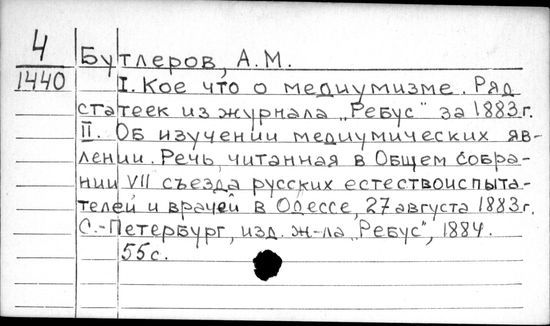 4
1440
Бутлеров, А.М.
I. Кое что о медиумизме. Ряд
статеек из журнала „Ребус" за 1883г.
II. Об изучении медиумических яв-
лении. Речь, читанная в Общем Собра-
нии VII съезда русских естествоиспыта-
телей и врачей в Одессе, 27 августа 1883г.
С.-Петербург, изд. ж-ла „Ребус", 1884.
55с.